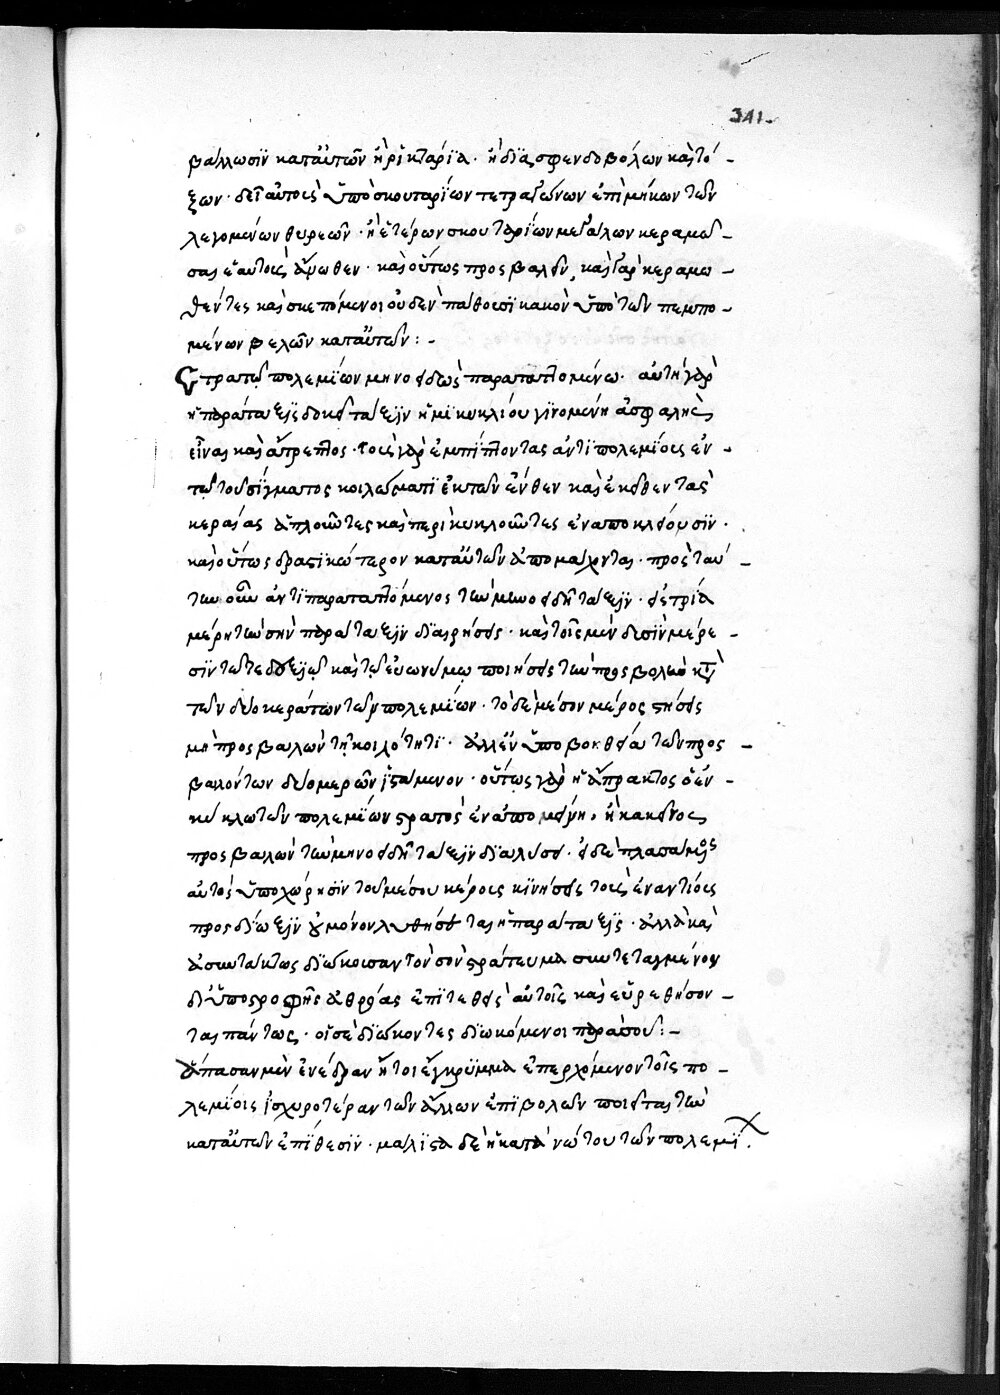 341.
βάλλωσϊν κατ' αὐτῶν ἢ ῥϊκτάρϊα · ἢ δϊὰ σφενδοβόλων καὶ τό-
ξων · δεῖ αὐτοῖς ὑπὸ σκουταρΐων τετραγώνων ἐπιμήκων τῶν
λεγομένων θυρεῶν · ἢ ἑτέρων σκουταρίων μεγάλων κεραμῶ-
σαι ἑαυτοῖς ἄνωθεν · καὶ οὕτως προσβαλεῖν, καὶ γὰρ κεραμω-
θέντες καὶ σκεπόμενοι οὐδὲν πάθοισϊ κακὸν ὑπὸ τῶν πεμπο-
μένων βελῶν κατ' αὐτῶν : -
Στρατῷ πολεμΐων μηνοειδῶς παραταττομένω · αὐτὴ γὰρ
ἡ παράταξϊς δοκεῖ τάξϊν ἡμϊκυκλίου γϊνομένη ἀσφαλὴς
εἶναι καὶ ἄτρεπτος · τοὺς γὰρ ἐμπίπτοντας ἀντϊπολεμΐοις ἐν -
τῷ τοῦ σΐγματος κοιλώματϊ ἐκ τῶν ἔνθεν καὶ ἐκεῖθεν τὰς
κεραίας ἁπλοῦντες καὶ περικυκλοῦντες ἐναποκλείουσϊν ·
καὶ οὕτως δραστϊκώτερον κατ' αὐτῶν ἀπομάχονται · πρὸς ταύ -
την οὖν ἀντϊπαραταττόμενος τὴν μηνοειδῆ τάξϊν · εἰς τρία
μέρη τὴν σὴν παράταξϊν δϊαιρήσεις · καὶ τοῖς μὲν δυσϊν μέρε -
σϊν τῷ τε δεξϊῷ καὶ τῷ εὐωνύμω ποιήσεις τὴν προσβολὴν κατὰ
τῶν δύο κεράτων τῶν πολεμΐων · τὸ δὲ μέσον μέρος στήσεις
μὴ προσβαλὼν τῇ κοιλότητϊ · ἀλλ' ἐν ὑποβοηθεία τῶν προσ -
βαλόντων δύο μερῶν ἱστάμενον · οὕτως γὰρ ἢ ἄπρακτος ὁ ἐν -
κύκλω τῶν πολεμΐων στρατὸς ἐναπομείνη, ἢ κἀκεῖνος
προσβαλὼν τὴν μηνοειδῆ τάξϊν δϊαλύσει · εἰ δὲ πλασάμενος
αὐτὸς ὑποχώρησϊν τοῦ μέσου μέρους κϊνήσεις τοὺς ἐναντίους
πρὸς δΐωξϊν οὐ μόνον λυθήσεται ἡ παράταξϊς · ἀλλὰ καὶ
ἀσυντάκτως δϊώκοισαν τὸν σὸν στράτευμα συντεταγμένου
δϊ' ὑποστροφῆς ἀθρόας ἐπϊτεθεὶς αὐτοῖς καὶ εὑρεθήσον -
ται πάντως · οἱ σὲ δϊώκοντες δϊωκόμενοι παρὰ σοῦ : -
Ἅπασαν μὲν ἐνέδραν ἤτοι ἐγκρΰμμα ἐπερχόμενον τοῖς πο -
λεμΐοις ἰσχυροτέραν τῶν ἄλλων ἐπϊβολῶν ποιεῖται τὴν
κατ' αὐτῶν ἐπΐθεσϊν · μάλϊστα δὲ ἡ κατὰ νώτου τῶν πολεμΐ.